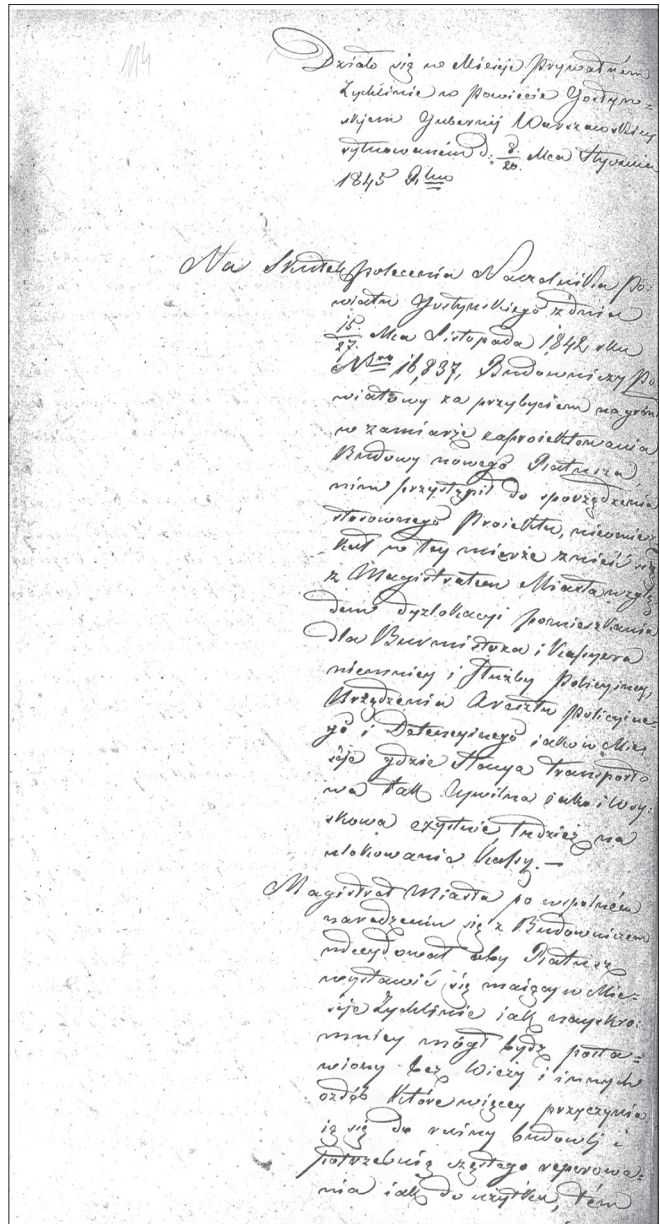 114
Działo się w Mieście Prywatnem
Żychlinie w Powiecie Gostyn=
skiem Gubernij Warszawskiey
sytuowanem d. 8/20 Mca Stycznia
1843 R.
Na Skutek polecenia Naczelnika Po=
wiatu Gostynskiego z dnia
15/27 Mca Listopada 1842 roku
Nro 16,837, Budowniczy Po
wiatowy za przybyciem na grunt
w zamiarze zaproiektowania
Budowy nowego Ratusza,
nim przystąpił do sporządzenia
stosownego Proiektu, niemiesz
kał w tey mierze znieść się
z Magistratem Miasta wzglę
dem dyzlokacyi pomieszkania
dla Burmistrza i Kassyera
niemniey i Służby Policyiney,
Urządzenia Aresztu Policyine=
go i Detencyinego iako w Mie=
ście gdzie Stacya Transporto
wa tak Cywilna iako i Woy=
skowa exystuie, tudzież na
ulokowanie Kassy. —
Magistrat Miasta po wspólnem
naradzeniu się z Budowniczem
zdecydował aby Ratusz
wystawić się maiący w Mie=
ście Żychlinie iak nayskro=
mniey mógł bydź posta=
wiony bez Wieży i innych
ozdób które więcey przyczynia
ią się do ruiny budowli i
potrzebuią częstego reperowa=
nia iak do użytku, tém